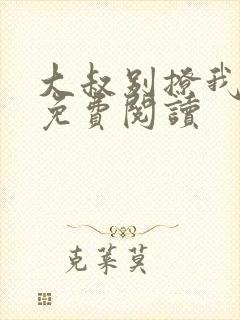 大叔别撩我
免費閱讀
克萊莫